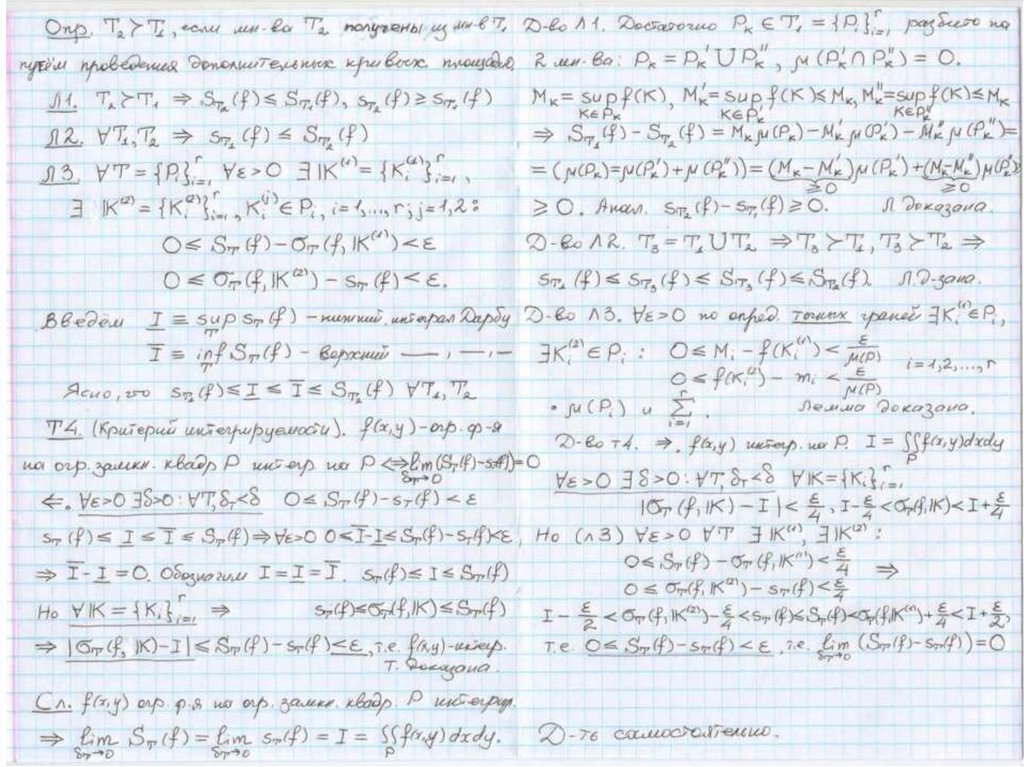 Опр. T₂≻T₁, если мн-ва T₂ получены из мн-в T₁
путём проведения дополнительных кривых площади 0.
Л1. T₂≻T₁ ⇒ S_T₂(f) ≤ S_T₁(f), s_T₂(f) ≥ s_T₁(f)
Л2. ∀T₁,T₂ ⇒ s_T₁(f) ≤ S_T₂(f)
Л3. ∀T = {Pᵢ}ᵢ₌₁ʳ ∀ε>0 ∃ 𝕂⁽¹⁾ = {Kᵢ⁽¹⁾}ᵢ₌₁ʳ,
∃ 𝕂⁽²⁾ = {Kᵢ⁽²⁾}ᵢ₌₁ʳ, Kᵢ⁽ʲ⁾∈Pᵢ, i=1,...,r; j=1,2:
0 ≤ S_T(f) − σ_T(f,𝕂⁽¹⁾) < ε
0 ≤ σ_T(f,𝕂⁽²⁾) − s_T(f) < ε.
Введём I̲ ≡ sup_T s_T(f) – нижний интеграл Дарбу
I̅ ≡ inf_T S_T(f) – верхний —— „ —„—
Ясно, что s_T₁(f) ≤ I̲ ≤ I̅ ≤ S_T₂(f) ∀T₁,T₂
Т4. (Критерий интегрируемости). f(x,y) – огр. ф-я
на огр. замкн. квадр P интегр. на P ⇔ lim_{δ_T→0}(S_T(f)−s_T(f))=0
⇐. ∀ε>0 ∃δ>0: ∀T, δ_T<δ 0 ≤ S_T(f) − s_T(f) < ε
s_T(f) ≤ I̲ ≤ I̅ ≤ S_T(f) ⇒ ∀ε>0 0≤I̅−I̲≤S_T(f)−s_T(f)<ε
⇒ I̅ − I̲ = 0. Обозначим I = I̲ = I̅. s_T(f) ≤ I ≤ S_T(f)
Но ∀𝕂 = {Kᵢ}ᵢ₌₁ʳ ⇒ s_T(f) ≤ σ_T(f,𝕂) ≤ S_T(f)
⇒ |σ_T(f,𝕂)−I| ≤ S_T(f) − s_T(f) ≤ ε, т.е. f(x,y)-интегр.
Т. доказана.
Сл. f(x,y) огр. ф-я на огр. замкн. квадр. P интегрир.
⇒ lim_{δ_T→0} S_T(f) = lim_{δ_T→0} s_T(f) = I = ∬_P f(x,y)dxdy.
Д-во Л1. Достаточно P_K ∈ T₁ = {Pᵢ}ᵢ₌₁ʳ разбито на
2 мн-ва: P_K = P_K′ ∪ P_K″, μ(P_K′ ∩ P_K″) = 0.
M_K = sup_{K∈P_K} f(K), M_K′ = sup_{K∈P_K′} f(K) ≤ M_K, M_K″ = sup_{K∈P_K″} f(K) ≤ M_K
⇒ S_T₁(f) − S_T₂(f) = M_K μ(P_K) − M_K′ μ(P_K′) − M_K″ μ(P_K″) =
= (μ(P_K)=μ(P_K′)+μ(P_K″)) = (M_K−M_K′)μ(P_K′) + (M_K−M_K″)μ(P_K″)
≥0 ≥0
≥ 0. Анал. s_T₂(f) − s_T₁(f) ≥ 0. Л доказана.
Д-во Л2. T₃ = T₁ ∪ T₂ ⇒ T₃≻T₁, T₃≻T₂ ⇒
s_T₁(f) ≤ s_T₃(f) ≤ S_T₃(f) ≤ S_T₂(f). Л Д-зана.
Д-во Л3. ∀ε>0 по опред. точных граней ∃Kᵢ⁽¹⁾∈Pᵢ,
∃Kᵢ⁽²⁾∈Pᵢ: 0 ≤ Mᵢ − f(Kᵢ⁽¹⁾) < ε/μ(P)
i=1,2,...,r
0 ≤ f(Kᵢ⁽²⁾) − mᵢ < ε/μ(P)
· μ(Pᵢ) и ∑ᵢ₌₁ʳ. Лемма доказана.
Д-во т4. ⇒. f(x,y) интегр. на P. I = ∬_P f(x,y)dxdy
∀ε>0 ∃δ>0: ∀T, δ_T<δ ∀𝕂={Kᵢ}ᵢ₌₁ʳ
|σ_T(f,𝕂) − I| < ε/4, I−ε/4<σ_T(f,𝕂)<I+ε/4
Но (Л3) ∀ε>0 ∀T ∃𝕂⁽¹⁾, ∃𝕂⁽²⁾:
0 ≤ S_T(f) − σ_T(f,𝕂⁽¹⁾) < ε/4 ⇒
0 ≤ σ_T(f,𝕂⁽²⁾) − s_T(f) < ε/4
I − ε/2 < σ_T(f,𝕂⁽²⁾) − ε/4 < s_T(f) ≤ S_T(f) < σ_T(f,𝕂⁽¹⁾) + ε/4 < I + ε/2,
т.е. 0 ≤ S_T(f) − s_T(f) < ε, т.е. lim_{δ_T→0} (S_T(f) − s_T(f)) = 0
Д-ть самостоятельно.